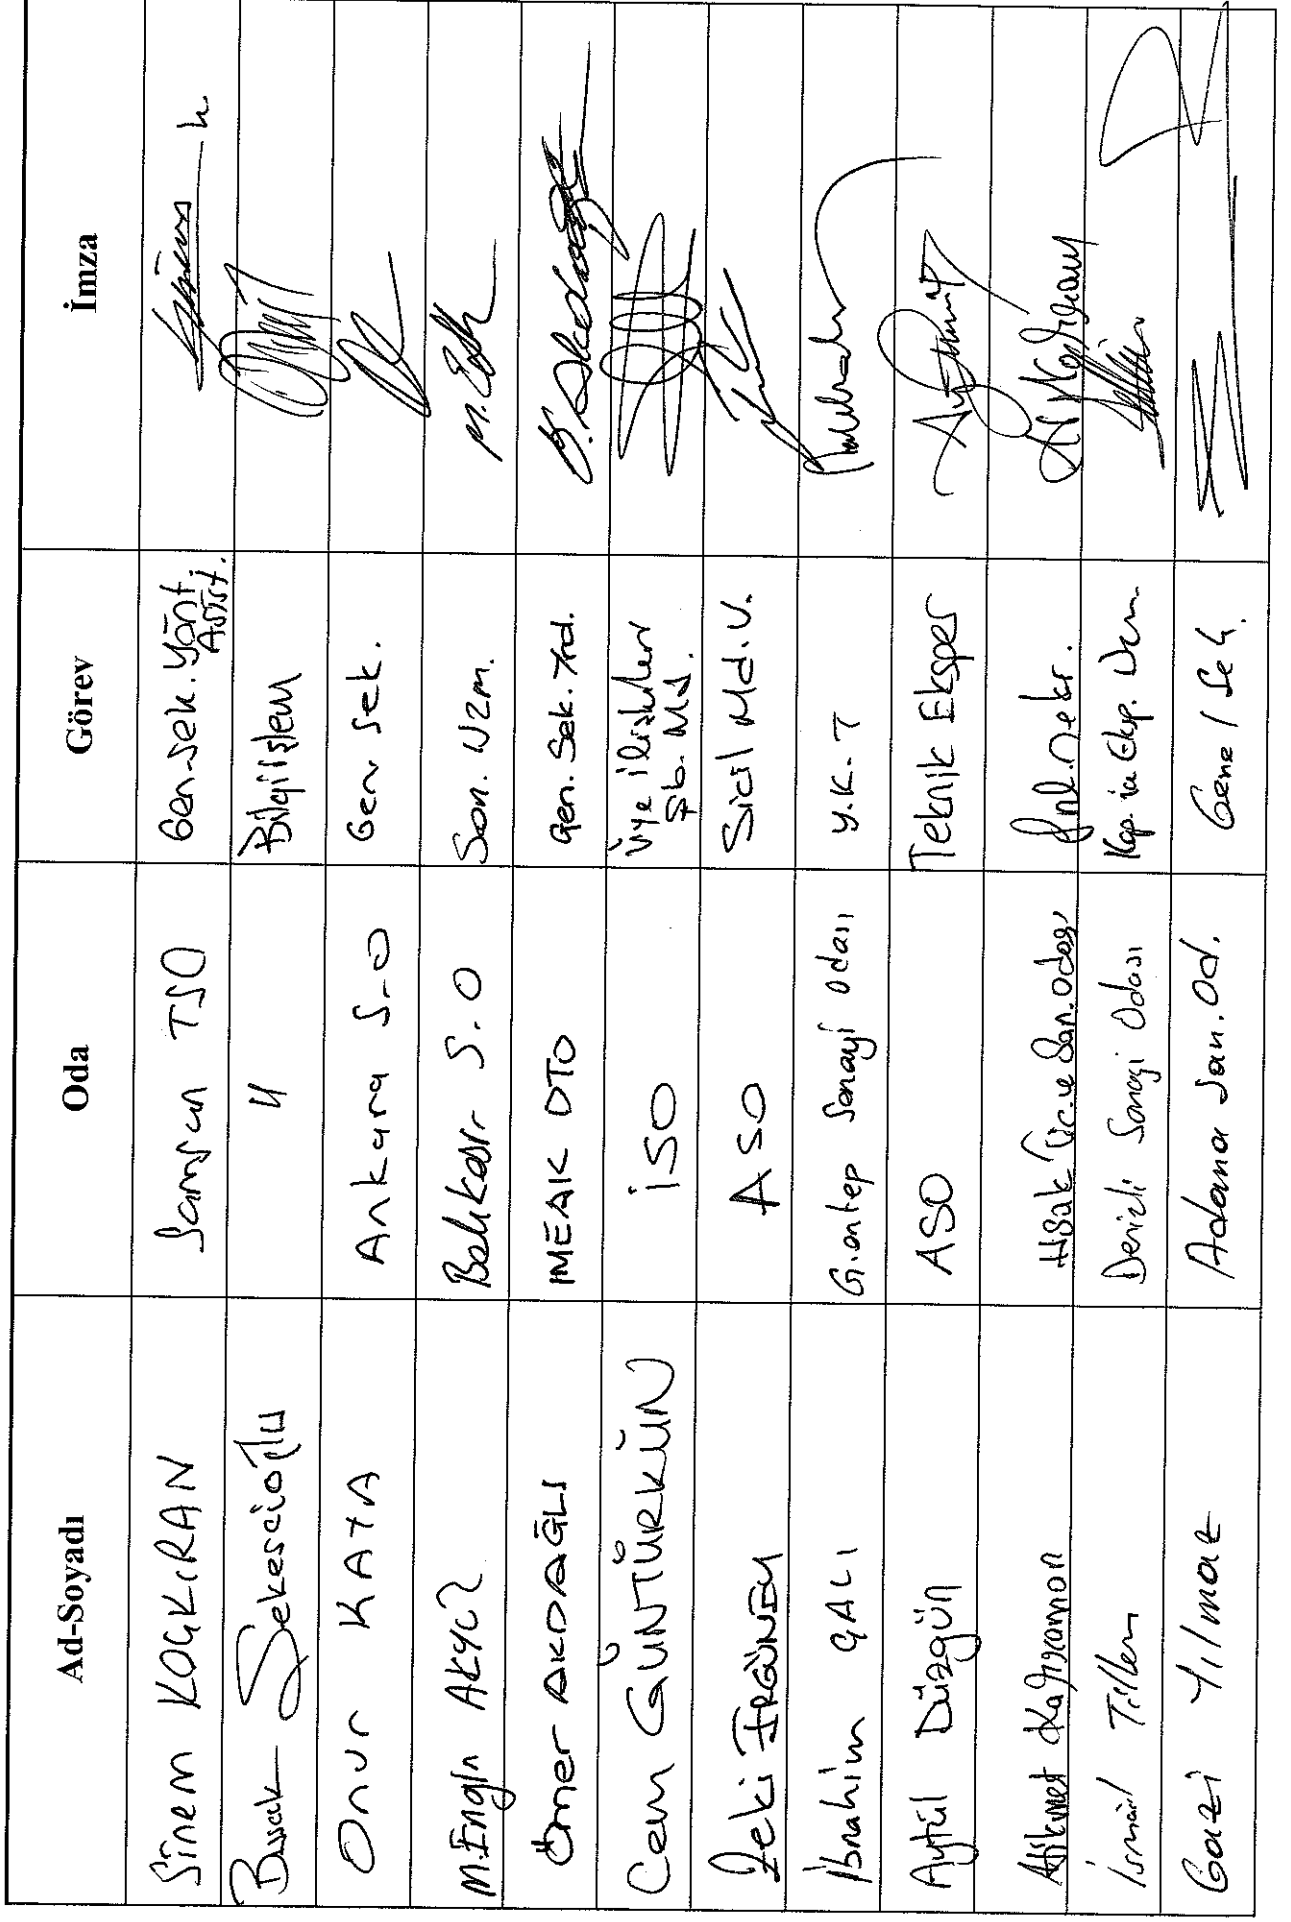 Ad-Soyadı Oda Görev İmza
Sinem KOÇKIRAN Samsun TSO Gen.Sek.Yönt. Asist.
Burak Şekercioğlu " Bilgiişlem
Onur KAYA Ankara S.O Gen Sek.
M.Engin AKYÜZ Balıkesir S.O San. Uzm. M.
Ömer AKDAĞLI IMEAK DTO Gen. Sek. Yrd. Ö. Akdağlı
Cem GÜNTÜRKÜN İSO Üye ilişkileri Şb. Md.
Zeki ERGÜNEY ASO Sicil Md. V.
İbrahim ÇALI G.antep Sanayi odası Y.K.T
Aytül Düzgün ASO Teknik Eksper
Kahraman Uşak Tic.ve San.odası
İsmail Tillem Denizli Sanayi Odası Kap. ve Eksp.
Gazi Yılmaz Adana San. Od. Genel Sek.